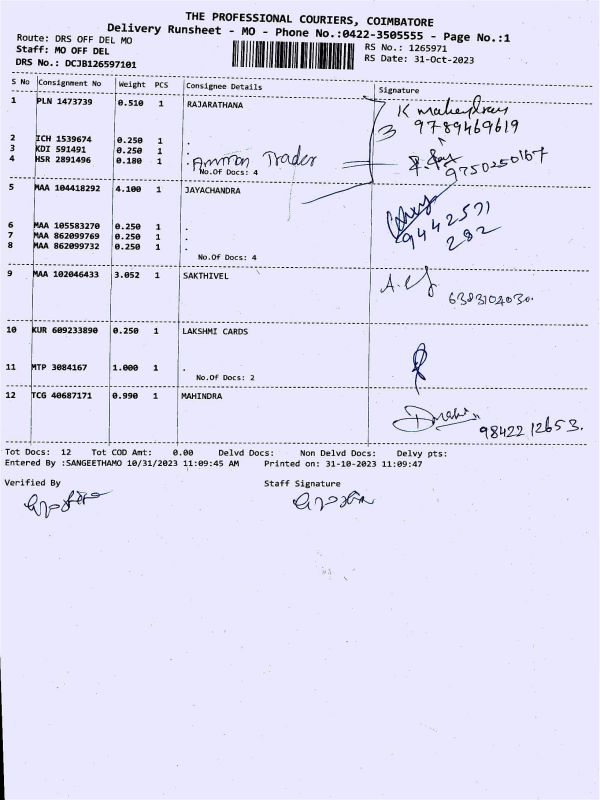 THE PROFESSIONAL COURIERS, COIMBATORE
Delivery Runsheet - MO - Phone No.:0422-3505555 - Page No.:1
Route: DRS OFF DEL MO
Staff: MO OFF DEL
DRS No.: DCJB126597101
RS No.: 1265971
RS Date: 31-Oct-2023
S No Consignment No Weight PCS Consignee Details Signature
1 PLN 1473739 0.510 1 RAJARATHANA
K
3 9789469619
2 ICH 1539674 0.250 1 .
3 KDI 591491 0.250 1 .
4 HSR 2891496 0.180 1 . Ammon Trader
9750250167
No.Of Docs: 4
5 MAA 104418292 4.100 1 JAYACHANDRA
6 MAA 105583270 0.250 1 .
7 MAA 862099769 0.250 1 .
8 MAA 862099732 0.250 1 .
9442571
282
No.Of Docs: 4
9 MAA 102046433 3.052 1 SAKTHIVEL
6383104030.
10 KUR 609233890 0.250 1 LAKSHMI CARDS
11 MTP 3084167 1.000 1 .
No.Of Docs: 2
12 TCG 40687171 0.990 1 MAHINDRA
9842212653.
Tot Docs: 12 Tot COD Amt: 0.00 Delvd Docs: Non Delvd Docs: Delvy pts:
Entered By :SANGEETHAMO 10/31/2023 11:09:45 AM Printed on: 31-10-2023 11:09:47
Verified By Staff Signature